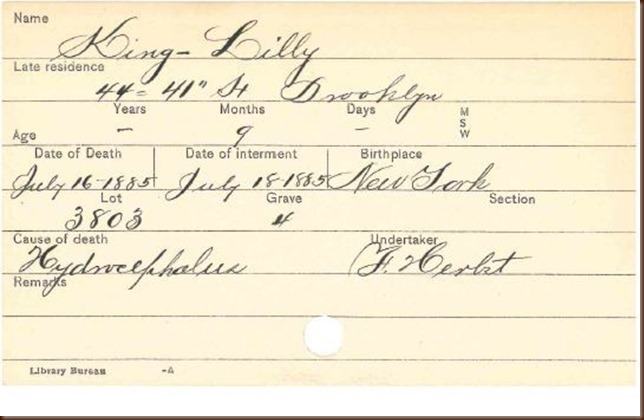 Name
King - Lilly
Late residence
44 = 41" St Brooklyn
Years Months Days M
S
W
Age - 9 -
Date of Death Date of interment Birthplace
July 16-1885 July 18-1885 New York
Lot Grave Section
3803 4
Cause of death Undertaker
Hydrocephalus F. Herbst
Remarks
Library Bureau -A